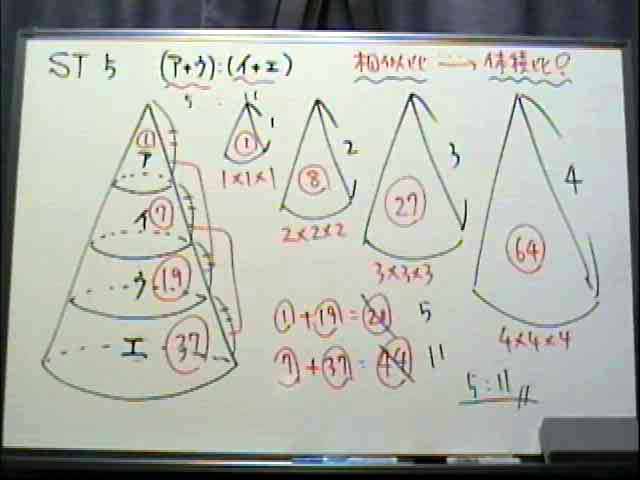 ST 5 (ア+ウ):(イ+エ) 相似比 → 体積比?
5 : 11
① ア
⑦ イ
⑲ ウ
㊲ エ
① 1
1×1×1
⑧ 2
2×2×2
㉗ 3
3×3×3
64 4
4×4×4
①+⑲=⑳ 5
⑦+㊲=㊹ 11
5:11